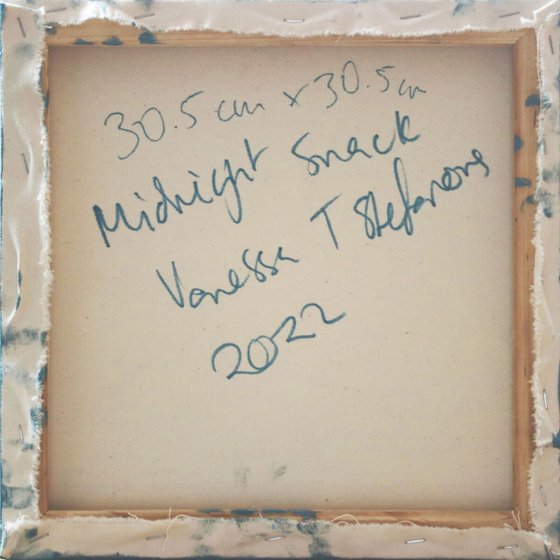 30.5 cm x 30.5 cm
Midnight Snack
Vanessa T Stefanova
2022